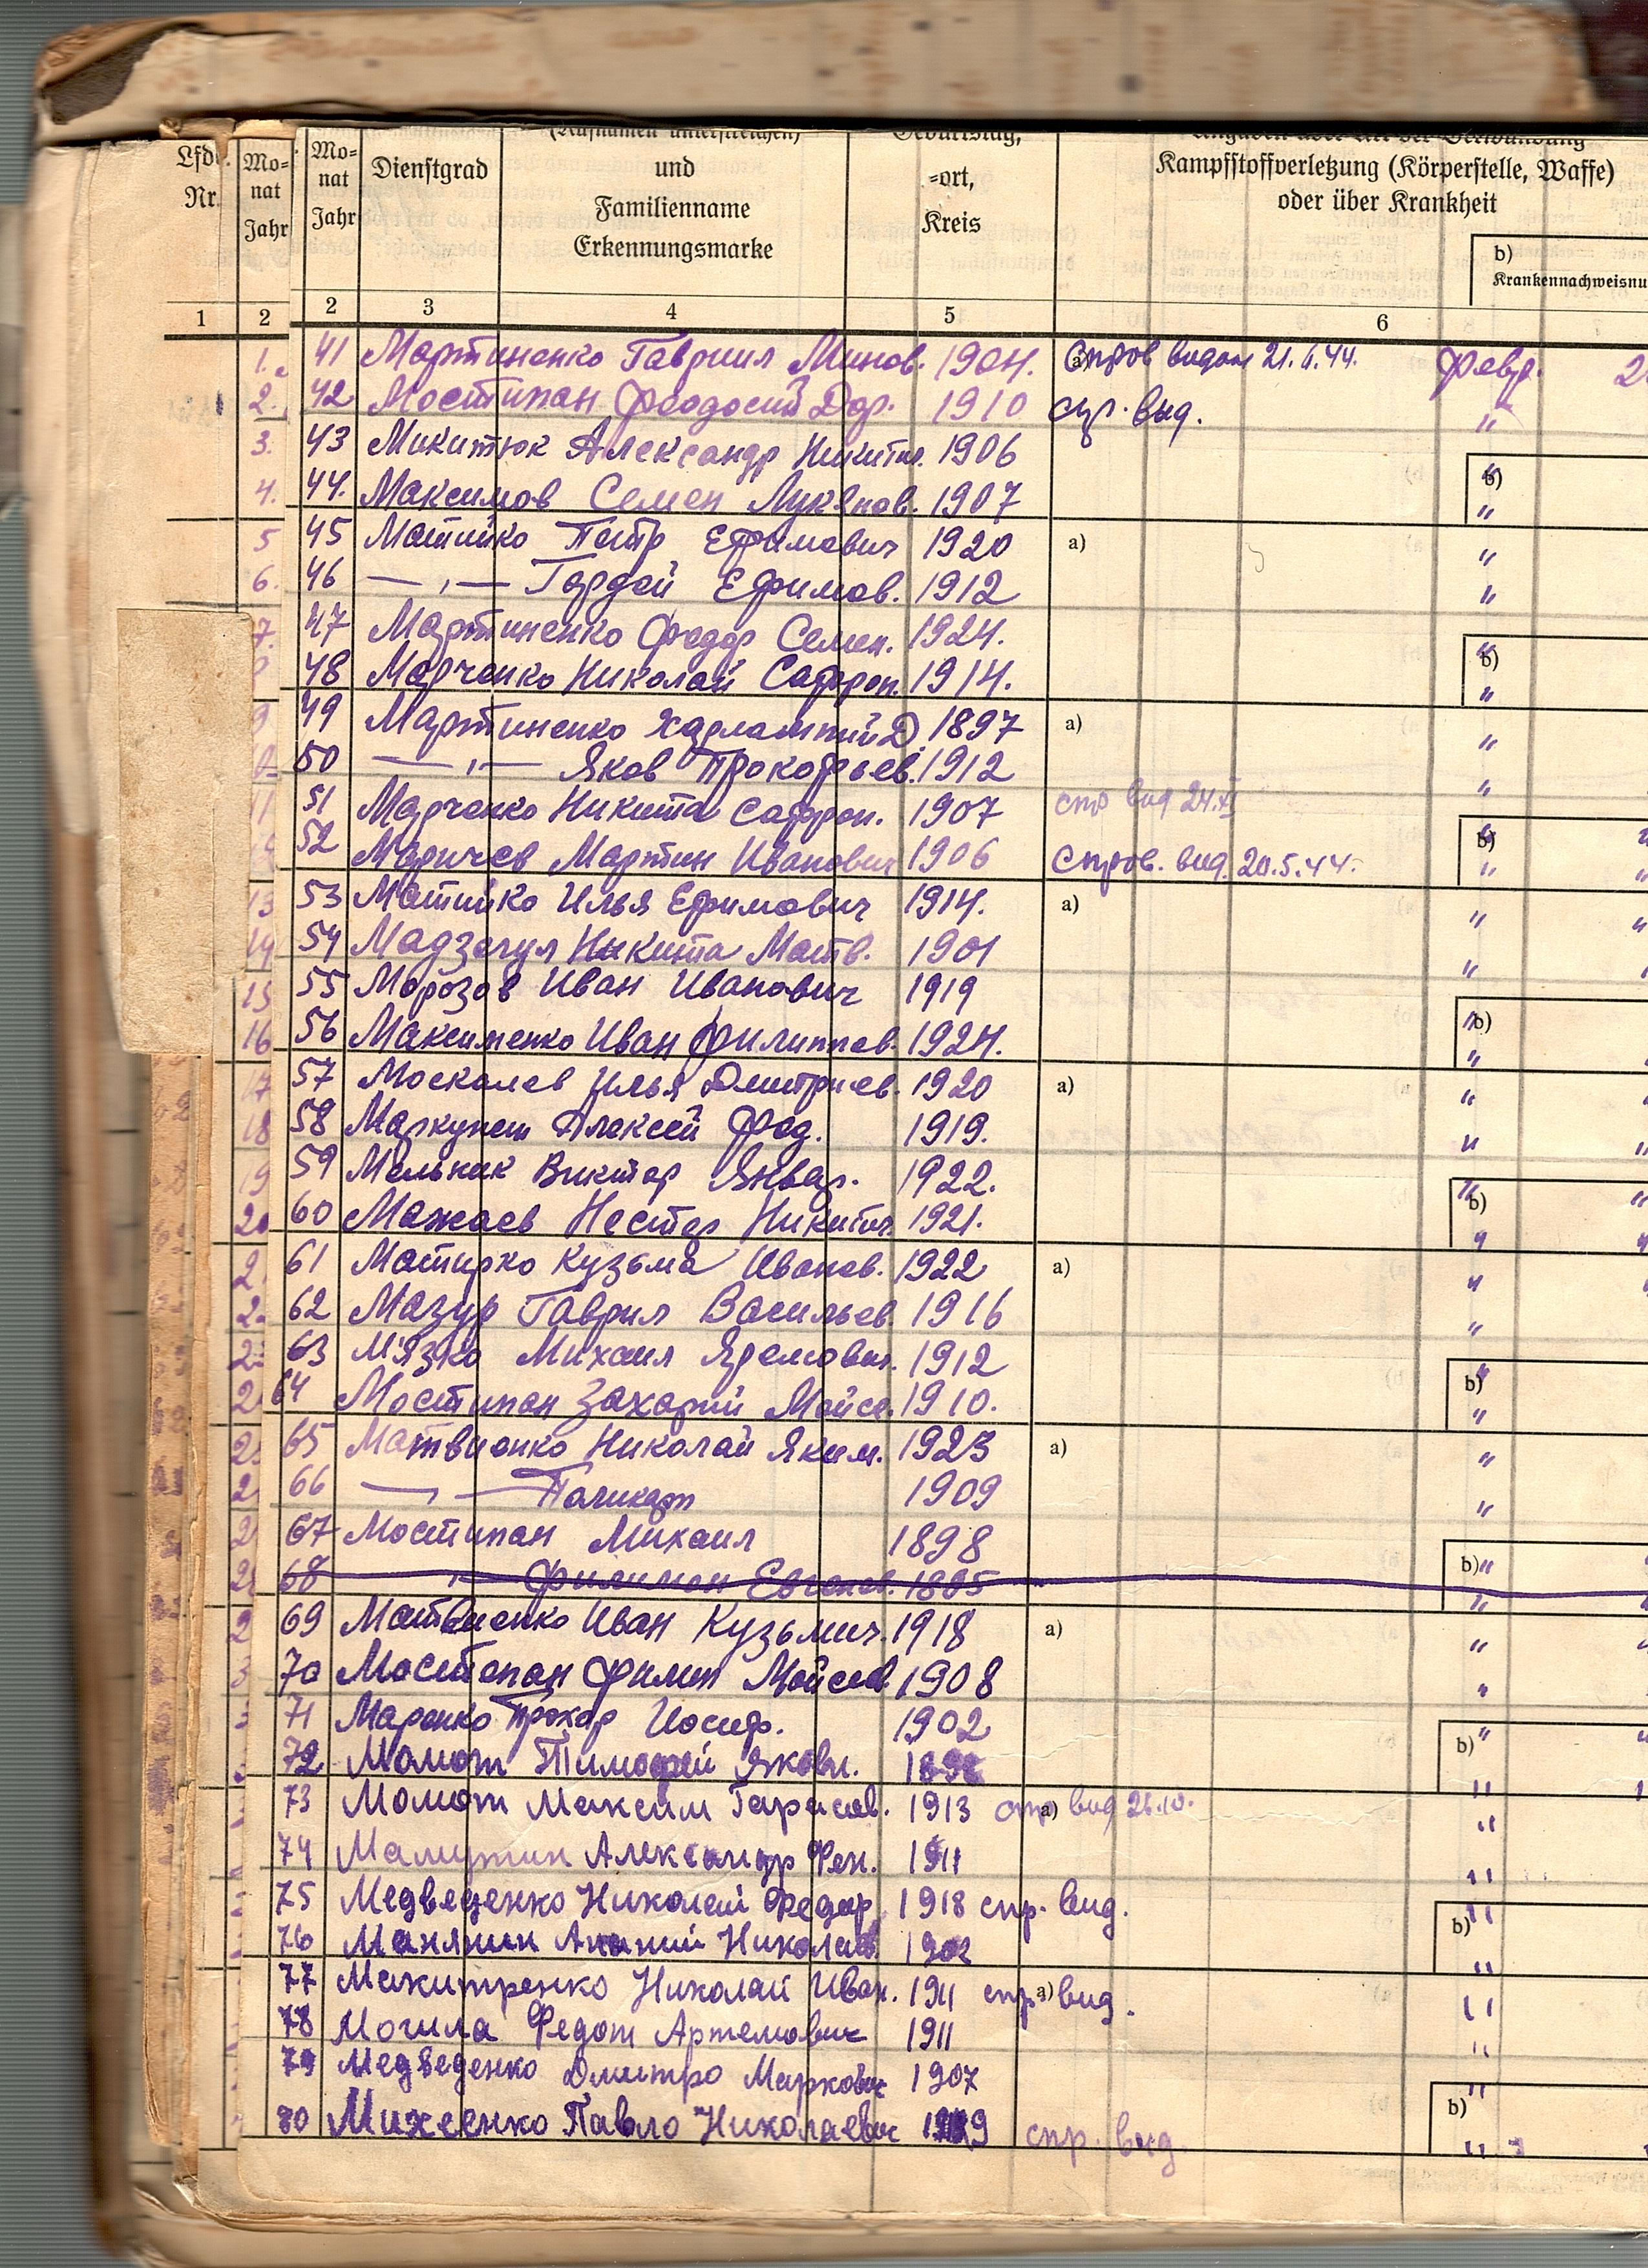 Lfde. Nr.
Mo-
nat
Jahr
Mo-
nat
Jahr
Dienstgrad
(Rufnamen unterstreichen)
und
Familienname
Erkennungsmarke
Geburtstag,
-ort,
Kreis
Kampfstoffverletzung (Körperstelle, Waffe)
oder über Krankheit
b)
Krankennachweisnu
1 2 2 3 4 5 6
1. 41 Мартиненко Гавриил Минов. 1904. a) Спров видан 21.6.44. февр.
2. 42 Мостипан Феодосий Дор. 1910 спр. выд. "
3. 43 Микитюк Александр Никитич. 1906 "
4. 44. Максимов Семен Лукянов. 1907 b) "
5 45 Матийко Петр Ефимович 1920 a) "
6. 46 — „ — Гордей Ефимов. 1912 "
7. 47 Мартиненко Федор Семен. 1924. b) "
48 Марченко Николай Сафрон. 1914. "
9 49 Мартиненко Харлампий Д. 1897 a) "
50 — „ — Яков Прокофьев. 1912 "
11 51 Марченко Никита Сафрон. 1907 спр вид 24.XI "
52 Маричев Мартин Иванович 1906 Спров. вид. 20.5.44. b) "
13 53 Матийко Илья Ефимович 1914. a) "
14 54 Никита Матв. 1901 "
15 55 Морозов Иван Иванович 1919
16 56 Максименко Иван Филиппов. 1924. b) "
17 57 Москалев Илья Дмитриев. 1920 a) "
18 58 Алексей Фед. 1919. "
19 59 Мельник Виктор Январ. 1922. "
20 60 Мажаев Нестер Никитич. 1921. b) "
61 Матирко Кузьма Иванов. 1922 a) "
62 Мазур Гаврил Васильев. 1916 "
63 М'язко Михаил Яремович. 1912 "
64 Мостипан Захарий Мойсе. 1910. b) "
65 Матвиенко Николай Яким. 1923 a) "
66 — „ — Поликарп 1909 "
67 Мостипан Михаил 1898
68 „ — Филимон 1895 b) "
69 Матвиенко Иван Кузьмич. 1918 a) "
70 Мостепан Филип Мойсеев. 1908 "
71 Маренко Прохор Иосиф. 1902 "
72 Момот Тимофей Яковл. 1898 b) "
73 Момот Максим Тарасов. 1913 a) спр вид 26.10. "
74 Александр 1911 "
75 Медведенко Николай Федор. 1918 спр. вид. "
76 Манякин Ананий Николаев 1902 b) "
77 Макитренко Николай Иван. 1911 a) спр. вид. "
78 Могила Федот Артемович 1911 "
79 Медведенко Дмитро Маркович 1907 "
80 Михеенко Павло Николаевич спр. вид b) "